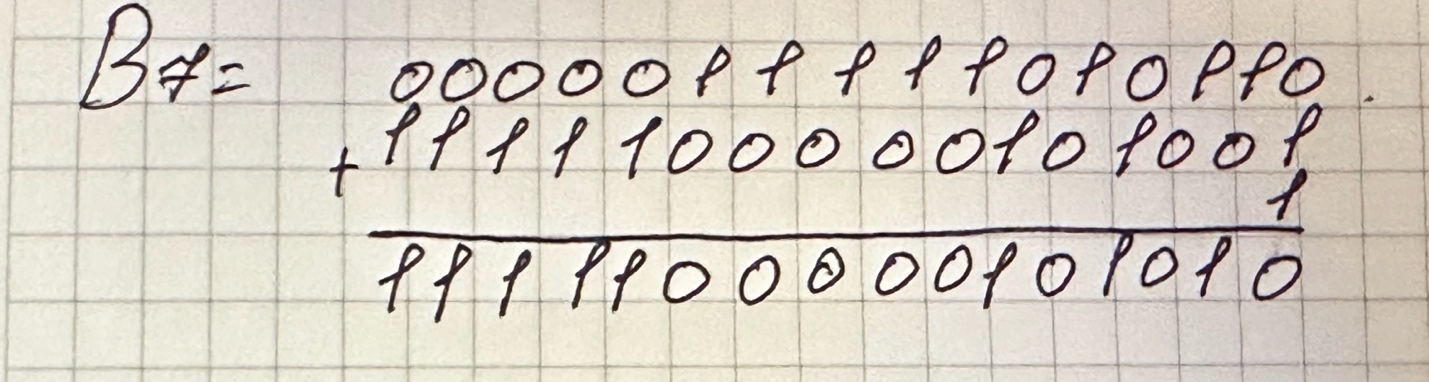 B7= 0000011111010110.
+ 1111100000101001
1
1111100000101010